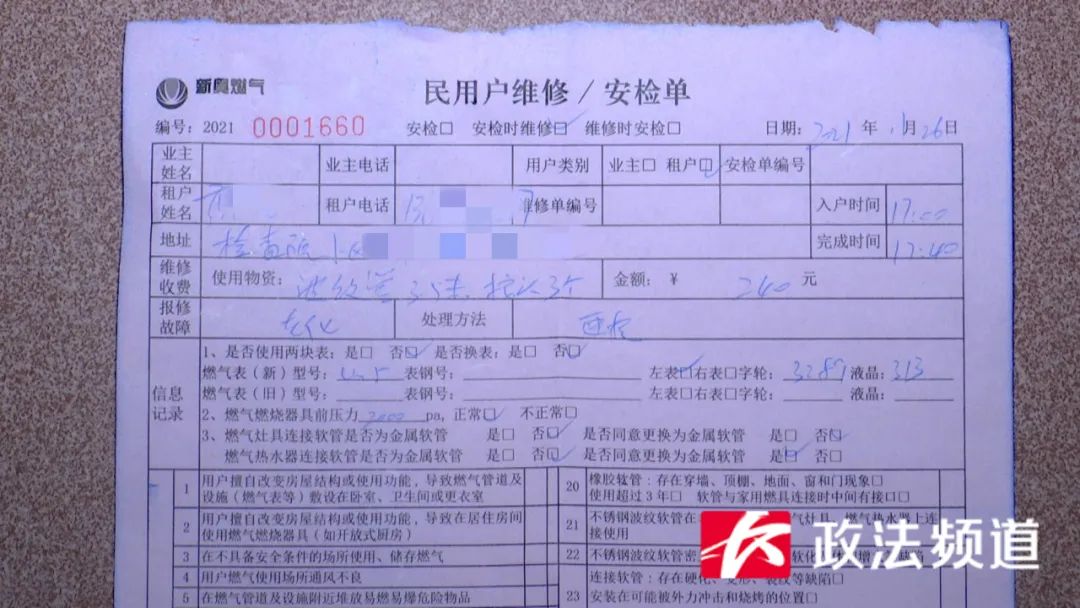 新奥燃气
民用户维修/安检单
编号：2021 0001660 安检□ 安检时维修□ 维修时安检□ 日期：2021年 月26日
业主姓名 业主电话 用户类别 业主□ 租户□ 安检单编号
租户姓名 租户电话 维修单编号 入户时间 17:00
地址 检查院 完成时间 17:40
维修收费 使用物资： 波纹管3.5米, 3个 金额：¥ 240 元
报修故障 处理方法
信息记录
1、是否使用两块表：是□ 否□ 是否换表：是□ 否□
燃气表（新）型号： 表钢号： 左表□右表□字轮：3287 液晶：313
燃气表（旧）型号： 表钢号： 左表□右表□字轮： 液晶：
2、燃气燃烧器具前压力2000 pa，正常□ 不正常□
3、燃气灶具连接软管是否为金属软管 是□ 否□ 是否同意更换为金属软管 是□ 否□
燃气热水器连接软管是否为金属软管 是□ 否□ 是否同意更换为金属软管 是□ 否□
1 用户擅自改变房屋结构或使用功能，导致燃气管道及
设施（燃气表等）敷设在卧室、卫生间或更衣室
2 用户擅自改变房屋结构或使用功能，导致在居住房间
使用燃气燃烧器具（如开放式厨房）
3 在不具备安全条件的场所使用、储存燃气
4 用户燃气使用场所通风不良
5 在燃气管道及设施附近堆放易燃易爆危险物品
20 橡胶软管：存在穿墙、顶棚、地面、窗和门现象□
使用超过3年□ 软管与家用燃具连接时中间有接口□
21 不锈钢波纹软管在 气灶具、燃气热水器上连
接使用
22 不锈钢波纹软管
连接软管：存在硬化、变形、裂纹等缺陷□
23 安装在可能被外力冲击和烧烤的位置□
政法频道